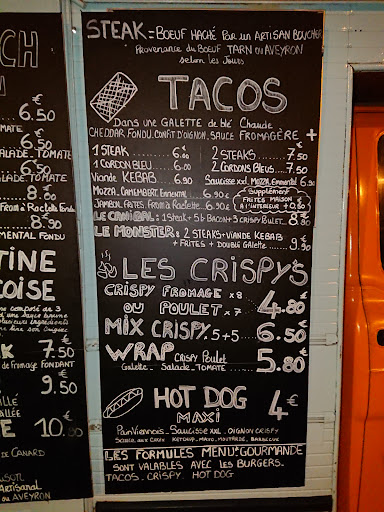 STEAK = BOEUF HACHÉ PAR UN ARTISAN BOUCHER
PROVENANCE DU BOEUF TARN OU AVEYRON
selon les Jours
TACOS
Dans une GALETTE de blé Chaude
CHEDDAR FONDU. CONFIT D'OIGNON. SAUCE FROMAGÈRE +
1 STEAK 6.€
2 STEAKS 7.50
1 CORDON BLEU
2 CORDONS BLEUS 7.50
Viande KEBAB 6.90
Saucisse XXL MOZZA. Emmental 6.90
MOZZA. CAMEMBERT. Emmental
JAMBON. FRITES. FROM. à Raclette 6.90
Supplément
FRITES MAISON
à L'INTERIEUR + 0.80
LE CANIBAL: 1 Steak + 5 b. BACON + 3 CRISPY POULET. 8.80
LE MONSTER: 2 STEAKS + VIANDE KEBAB
+ FRITES + DOUBLE GALETTE 9.90
LES CRISPY'S
CRISPY FROMAGE x 8
OU POULET x 7
4.80€
MIX CRISPY. 5+5 6.50€
WRAP CRISPY Poulet
Galette _ Salade _ TOMATE 5.80€
HOT DOG
MAXI
4€
Pain Viennois _ Saucisse XXL _ OIGNON CRISPY
Sauce au choix KETCHUP. MAYO. MOUTARDE. BARBECUE
LES FORMULES MENU & GOURMANDE
SONT VALABLES AVEC LES BURGERS _
TACOS _ CRISPY. HOT DOG
CH
6.50
TOMATE
6.50
SALADE _ TOMATE
6.50
8.60
From à Raclette Fondu
8.80
MENTAL FONDU
TINE
OISE
7.50
de Fromage FONDANT
9.50
10.90
de CANARD
Artisanal
ou AVEYRON